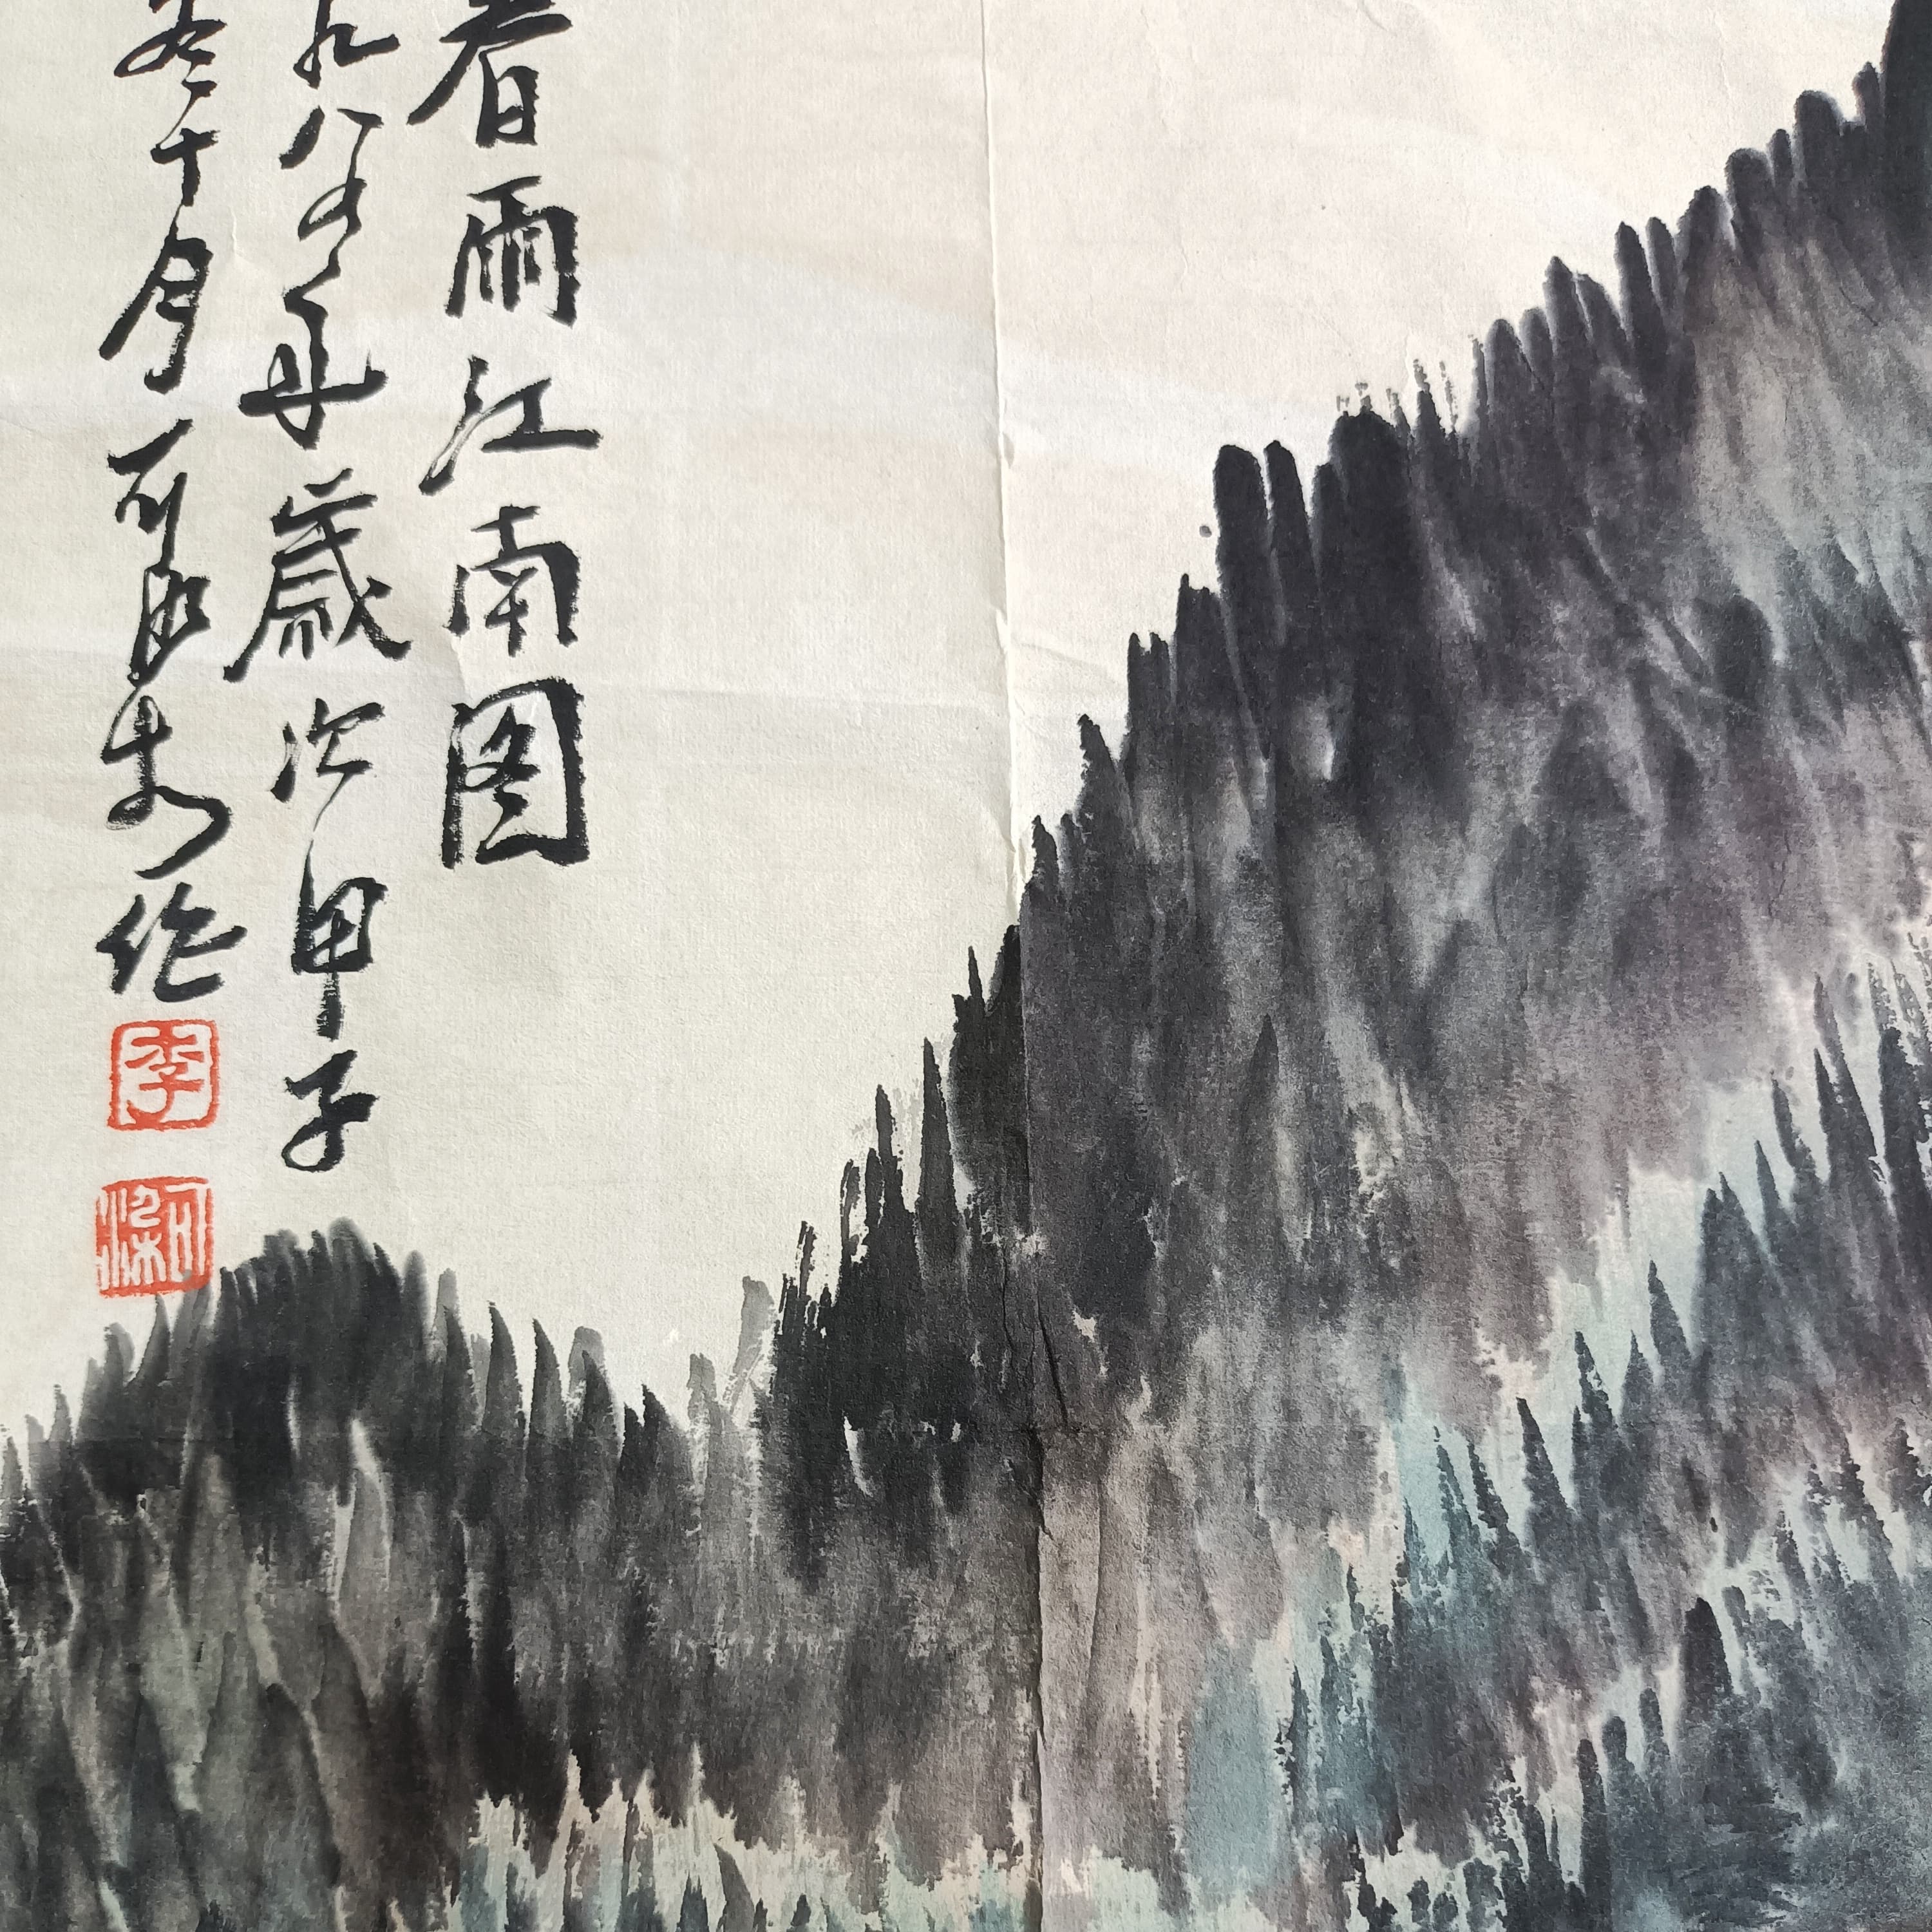 春雨江南图
九八四年歲次甲子
冬十月可染作
李
可染